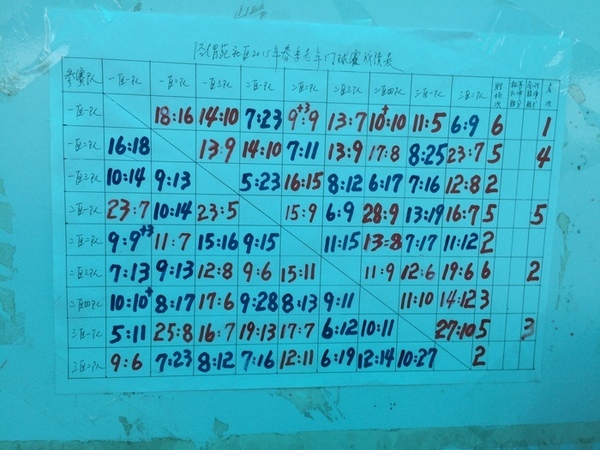 社区2015年春季老年门球赛成绩表
参赛队 一区一队 一区二队 一区三队 二区一队 二区二队 二区三队 二区四队 三区一队 三区二队 胜场次 名次
一区一队 18:16 14:10 7:23 9+3:9 13:7 10+:10 11:5 6:9 6 1
一区二队 16:18 13:9 14:10 7:11 13:9 17:8 8:25 23:7 5 4
一区三队 10:14 9:13 5:23 16:15 8:12 6:17 7:16 12:8 2
二区一队 23:7 10:14 23:5 15:9 6:9 28:9 13:19 16:7 5 5
二区二队 9:9+3 11:7 15:16 9:15 11:15 13=8 7:17 11:12 2
二区三队 7:13 9:13 12:8 9:6 15:11 11:9 12:6 19:6 6 2
二区四队 10:10+ 8:17 17:6 9:28 8:13 9:11 11:10 14:12 3
三区一队 5:11 25:8 16:7 19:13 17:7 6:12 10:11 27:10 5 3
三区二队 9:6 7:23 8:12 7:16 12:11 6:19 12:14 10:27 2